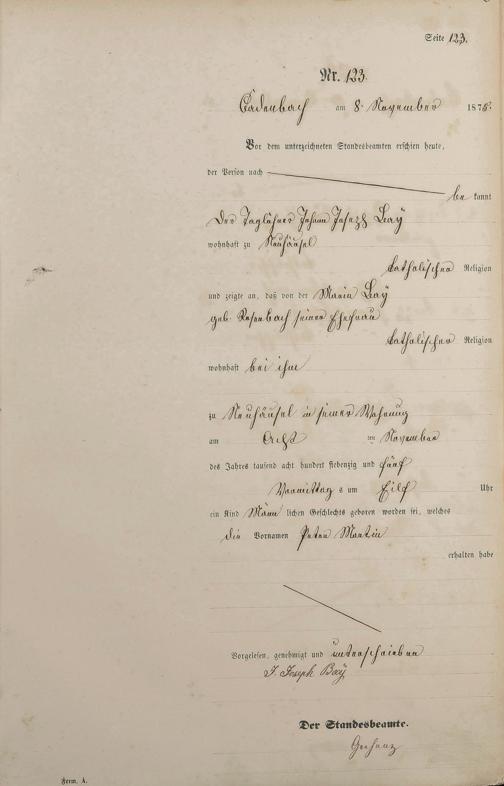 Seite 123.
Nr. 123.
Cadenbach am 8. November 1875.
Vor dem unterzeichneten Standesbeamten erschien heute,
der Person nach
be kannt
der Taglöhner Johann Joseph Baÿ
wohnhaft zu Neuhäusel
katholischer Religion
und zeigte an, daß von der Maria Baÿ
geb. Rosenbach seiner Ehefrau
katholischer Religion
wohnhaft bei ihm
zu Neuhäusel in seiner Wohnung
am Acht ten November
des Jahres tausend acht hundert siebenzig und fünf
Vormittag s um Eilf Uhr
ein Kind Männ lichen Geschlechts geboren worden sei, welches
die Vornamen Peter Martin
erhalten habe
Vorgelesen, genehmigt und unterschrieben
J. Joseph Baÿ
Der Standesbeamte.
Form. A.